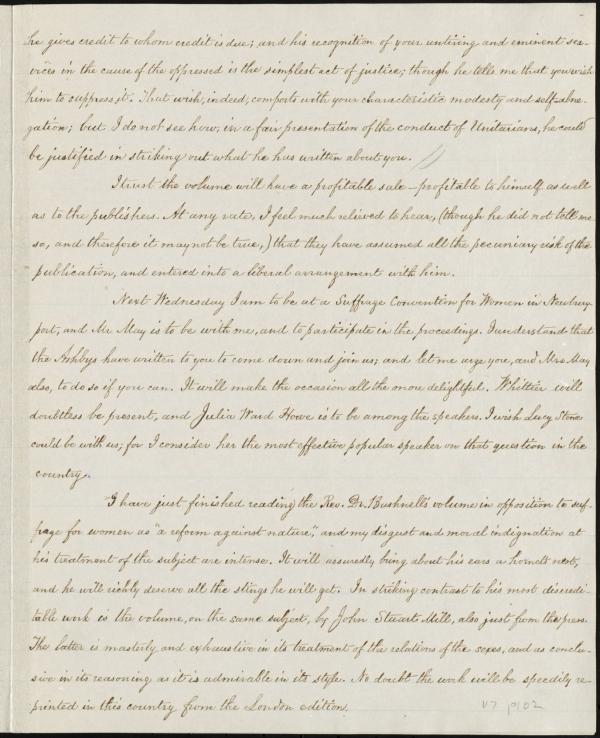 he gives credit to whom credit is due; and his recognition of your untiring and eminent ser-
vices in the cause of the oppressed is the simplest act of justice; though he tells me that you wish
him to suppress it. That wish, indeed, comports with your characteristic modesty and self-abne-
gation; but I do not see how, in a fair presentation of the conduct of Unitarians, he could
be justified in striking out what he has written about you.
I trust the volume will have a profitable sale—profitable to himself as well
as to the publishers. At any rate, I feel much relieved to hear, (though he did not tell me
so, and therefore it may not be true,) that they have assumed all the pecuniary risk of the
publication, and entered into a liberal arrangement with him.
Next Wednesday I am to be at a Suffrage Convention for Women in Newbury-
port, and Mr May is to be with me, and to participate in the proceedings. I understand that
the Ashbys have written to you to come down and join us; and let me urge you, and Mrs May
also, to do so if you can. It will make the occasion all the more delightful. Whittier will
doubtless be present, and Julia Ward Howe is to be among the speakers. I wish Lucy Stone
could be with us; for I consider her the most effective popular speaker on that question in the
country.
I have just finished reading the Rev. Dr. Bushnell's volume in opposition to suf-
frage for women as "a reform against nature," and my disgust and moral indignation at
his treatment of the subject are intense. It will assuredly bring about his ears a hornet's nest,
and he will richly deserve all the stings he will get. In striking contrast to his most discredi-
table work is the volume, on the same subject, by John Stuart Mill, also just from the press.
The latter is masterly and exhaustive in its treatment of the relations of the sexes, and as conclu-
sive in its reasoning as it is admirable in its style. No doubt the work will be speedily re-
printed in this country from the London edition.
V7 p102